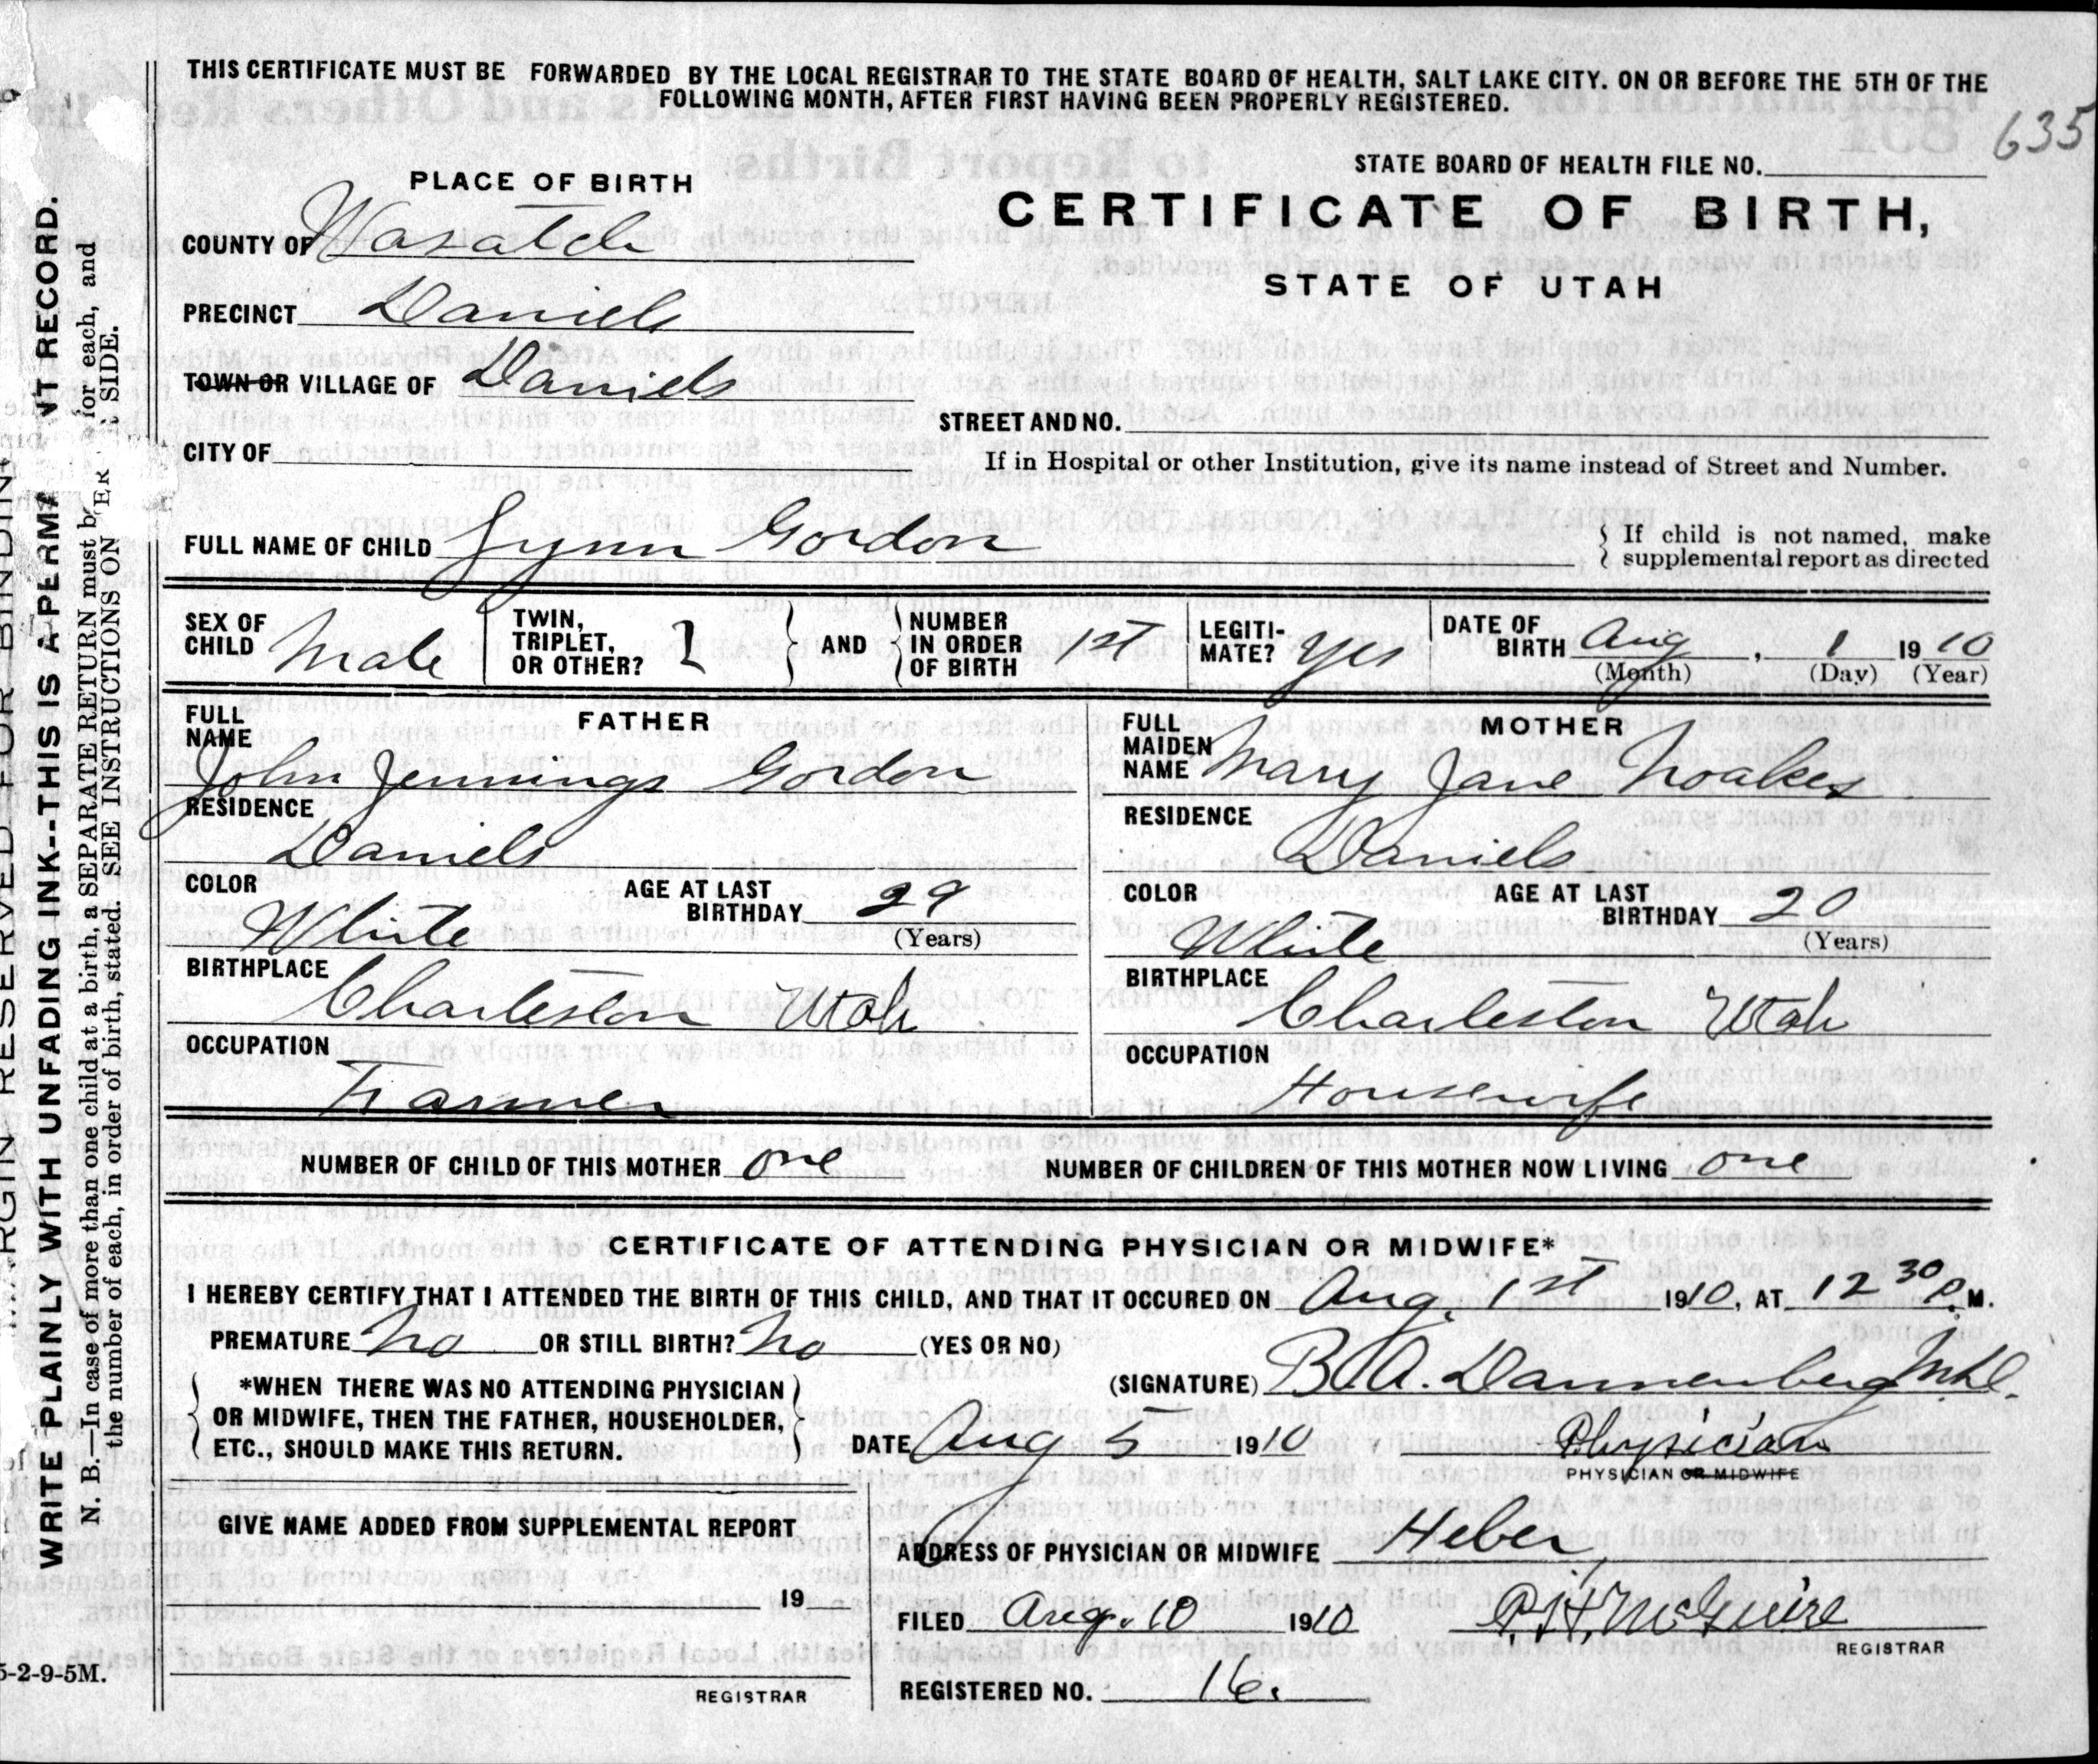 THIS CERTIFICATE MUST BE FORWARDED BY THE LOCAL REGISTRAR TO THE STATE BOARD OF HEALTH, SALT LAKE CITY. ON OR BEFORE THE 5TH OF THE
FOLLOWING MONTH, AFTER FIRST HAVING BEEN PROPERLY REGISTERED.
635
STATE BOARD OF HEALTH FILE NO.
PLACE OF BIRTH
CERTIFICATE OF BIRTH,
STATE OF UTAH
COUNTY OF Wasatch
PRECINCT Daniels
TOWN OR VILLAGE OF Daniels
STREET AND NO.
CITY OF
If in Hospital or other Institution, give its name instead of Street and Number.
FULL NAME OF CHILD Lynn Gordon
If child is not named, make
supplemental report as directed
SEX OF CHILD Male
TWIN, TRIPLET, OR OTHER?
AND NUMBER IN ORDER OF BIRTH 1st
LEGITI-MATE? Yes
DATE OF BIRTH Aug, 1 1910
(Month) (Day) (Year)
FATHER
FULL NAME John Jennings Gordon
RESIDENCE
Daniels
COLOR White
AGE AT LAST BIRTHDAY 29
(Years)
BIRTHPLACE
Charleston Utah
OCCUPATION
Farmer
MOTHER
FULL MAIDEN NAME Mary Jane Noakes
RESIDENCE
Daniels
COLOR White
AGE AT LAST BIRTHDAY 20
(Years)
BIRTHPLACE
Charleston Utah
OCCUPATION
Housewife
NUMBER OF CHILD OF THIS MOTHER one
NUMBER OF CHILDREN OF THIS MOTHER NOW LIVING one
CERTIFICATE OF ATTENDING PHYSICIAN OR MIDWIFE*
I HEREBY CERTIFY THAT I ATTENDED THE BIRTH OF THIS CHILD, AND THAT IT OCCURED ON Aug. 1st 1910, AT 12 30 P.M.
PREMATURE No OR STILL BIRTH? No (YES OR NO)
*WHEN THERE WAS NO ATTENDING PHYSICIAN
OR MIDWIFE, THEN THE FATHER, HOUSEHOLDER,
ETC., SHOULD MAKE THIS RETURN.
(SIGNATURE) Dannenberg
DATE Aug 5 1910
Physician
PHYSICIAN OR MIDWIFE
GIVE NAME ADDED FROM SUPPLEMENTAL REPORT
19
REGISTRAR
ADDRESS OF PHYSICIAN OR MIDWIFE Heber
FILED Aug. 10 1910
McGuire
REGISTRAR
REGISTERED NO. 16.
WRITE PLAINLY WITH UNFADING INK--THIS IS A PERMA NT RECORD.
N. B.—In case of more than one child at a birth, a SEPARATE RETURN must b for each, and
the number of each, in order of birth, stated. SEE INSTRUCTIONS ON ER SIDE.
5-2-9-5M.